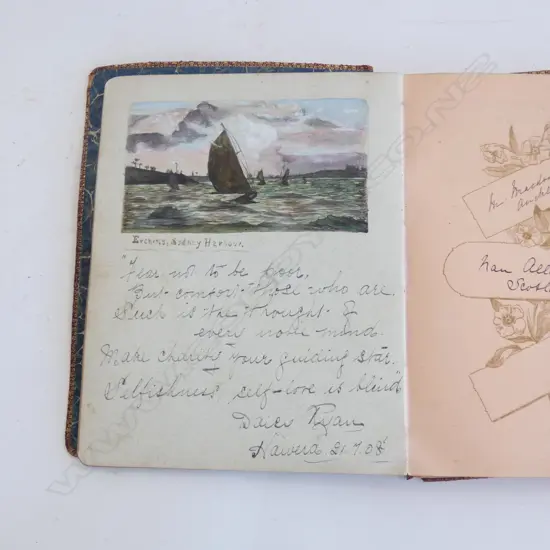 Evening, Sydney Harbour.
"Fear not to be poor,
But comfort those who are
Such is the thought of
every noble mind.
Make charity your guiding star,
Selfishness self-love is blind"
Ryan
Hawera 21.7.08
Nan